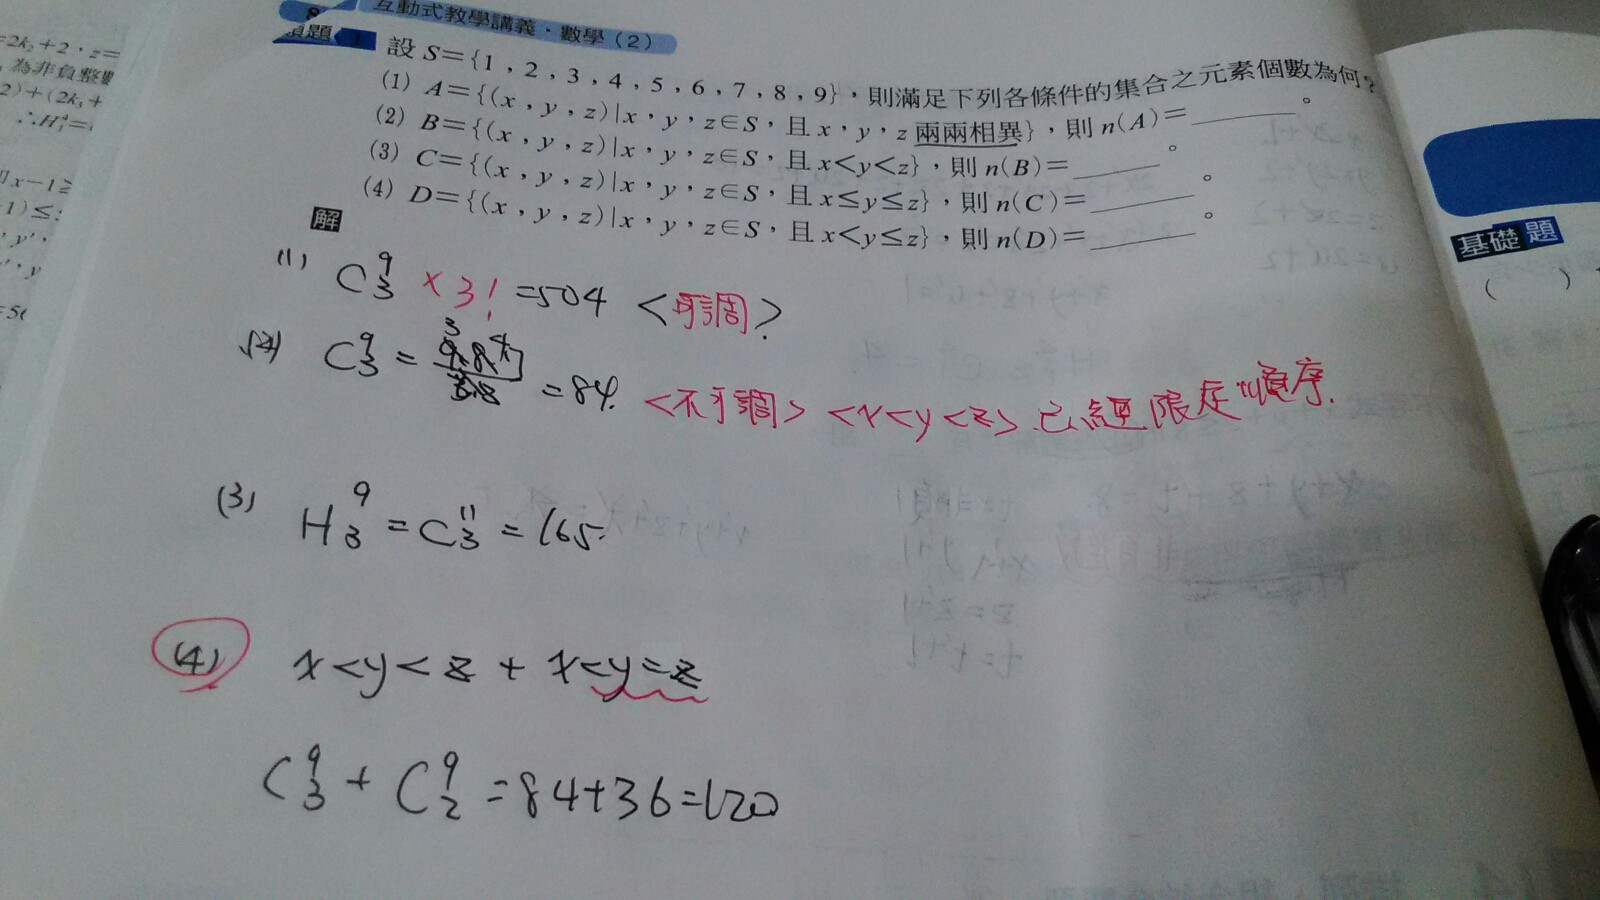 互動式教學講義・數學(2)
題 1 設 S={1,2,3,4,5,6,7,8,9},則滿足下列各條件的集合之元素個數為何?
(1) A={(x,y,z)|x,y,z∈S,且x,y,z兩兩相異},則n(A)=______。
(2) B={(x,y,z)|x,y,z∈S,且x<y<z},則n(B)=______。
(3) C={(x,y,z)|x,y,z∈S,且x≤y≤z},則n(C)=______。
(4) D={(x,y,z)|x,y,z∈S,且x<y≤z},則n(D)=______。
解
(1) C⁹₃ ×3! =504 <可調>
C⁹₃ = =84. <不可調> <x<y<z> 已經限定順序.
(3) H⁹₃ = C¹¹₃ = 165.
(4) x<y<z + x<y=z
C⁹₃ + C⁹₂ =84+36=120
基礎題
( )
=2k₂+2,z=
為非負整數
2)+(2k₃+